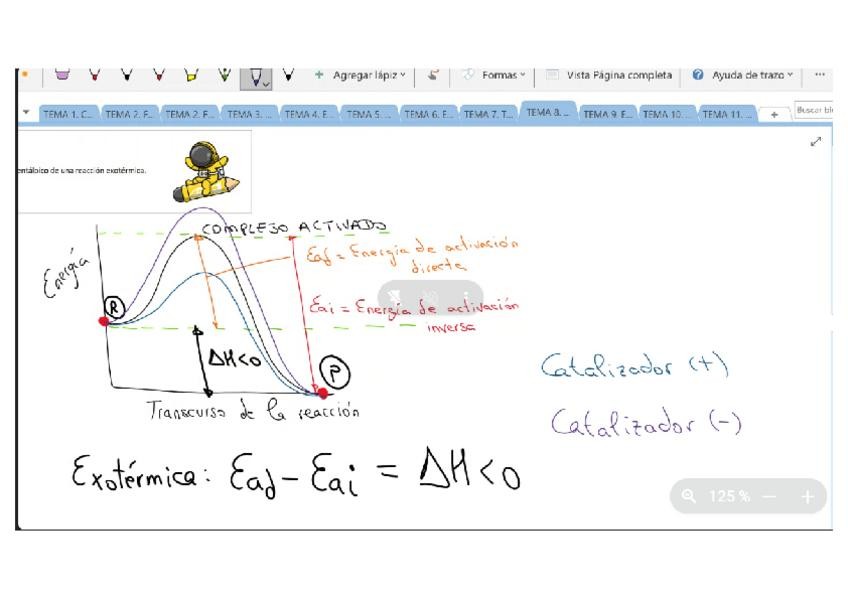 Agregar lápiz
Formas
Vista Página completa
Ayuda de trazo
TEMA 1. C...
TEMA 2. F...
TEMA 2. F...
TEMA 3. ...
TEMA 4. E...
TEMA 5. ...
TEMA 6. E...
TEMA 7. T...
TEMA 8. ...
TEMA 9. E...
TEMA 10. ...
TEMA 11. ...
Buscar bl
entálpico de una reacción exotérmica.
COMPLEJO ACTIVADO
Energía
Ead = Energía de activación
directa
R
Eai = Energía de activación
inversa
ΔH<0
P
Transcurso de la reacción
Catalizador (+)
Catalizador (-)
Exotérmica: Ead - Eai = ΔH<0
125 %